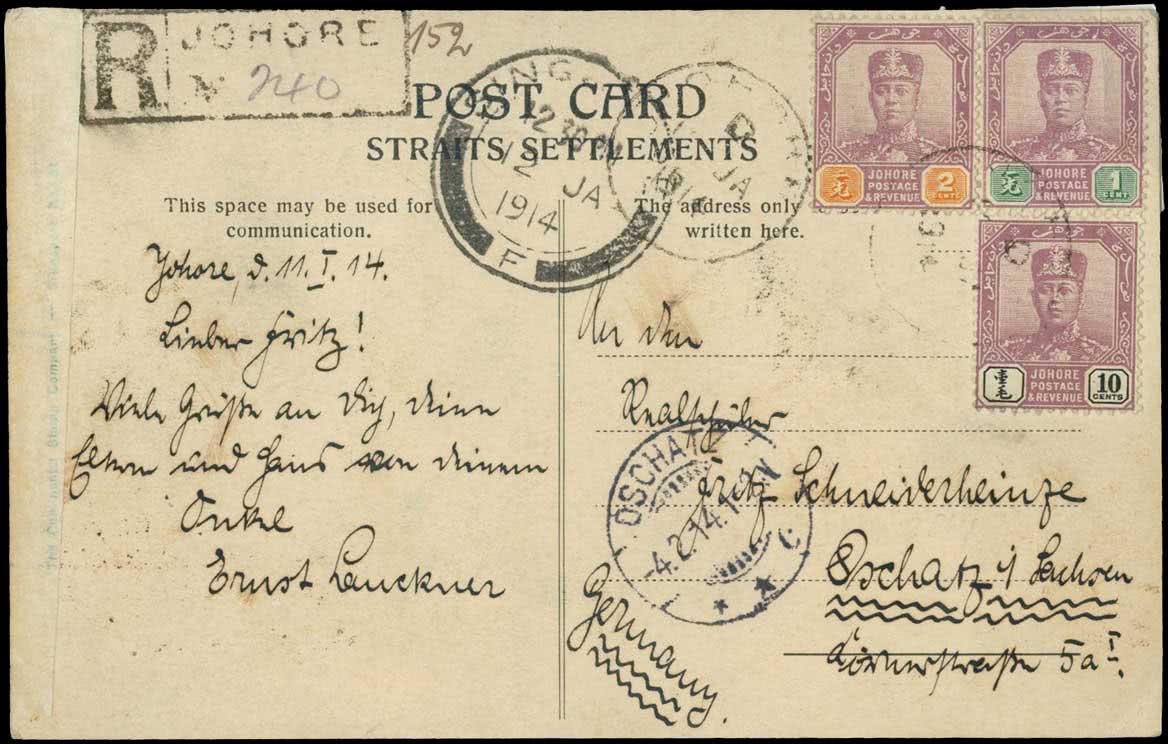 R JOHORE
No 240
152
POST CARD
STRAITS SETTLEMENTS
This space may be used for
communication.
The address only
written here.
12 30
12
JA
1914
F
D
JA
JOHORE
POSTAGE
& REVENUE
2
CENTS
JOHORE
POSTAGE
& REVENUE
1
CENT
JOHORE
POSTAGE
& REVENUE
壹毛
10
CENTS
Johore, d. 11. I. 14.
Lieber Fritz!
Viele Grüße an Dich, deine
Eltern und Hans von deinem
Onkel
Ernst Lauckner
An den
Realschüler
Fritz Schneiderheinze
Oschatz i/ Sachsen
Körnerstraße 5a I.
Germany.
OSCHATZ
-4.2.14.
C